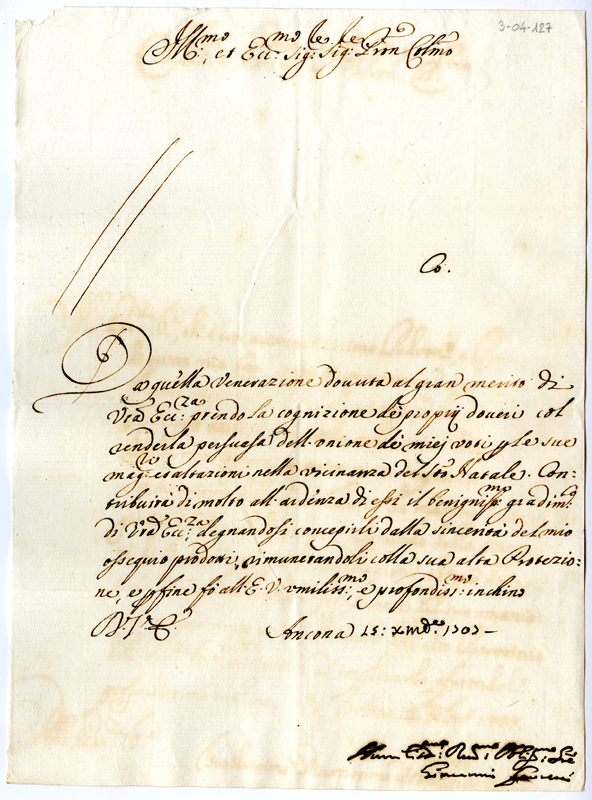 3-04-127
Ill:mo, et Ecc:mo Sig: Sig: Pron Colmo
Co.
Da quella Venerazione dovuta al gran merito di
Vra Ecc:za prendo la cognizione de proprij doveri col
renderla persuasa dell'unione de miej voti p le sue
mag:ri esaltazioni nella vicinanza del Sto Natale. Con-
tribuirà di molto all'ardenza di essi il benigniss:mo gradim:to
di Vra Ecc:za degnandosi concepirli dalla sincerità del mio
ossequio prodotti, rimunerandoli colla sua alta Protezio-
ne, e p fine fò all'E. V. umiliss:mo, e profondiss:mo inchino
Di V. E.
Ancona 15: Xmbre
Giovanni